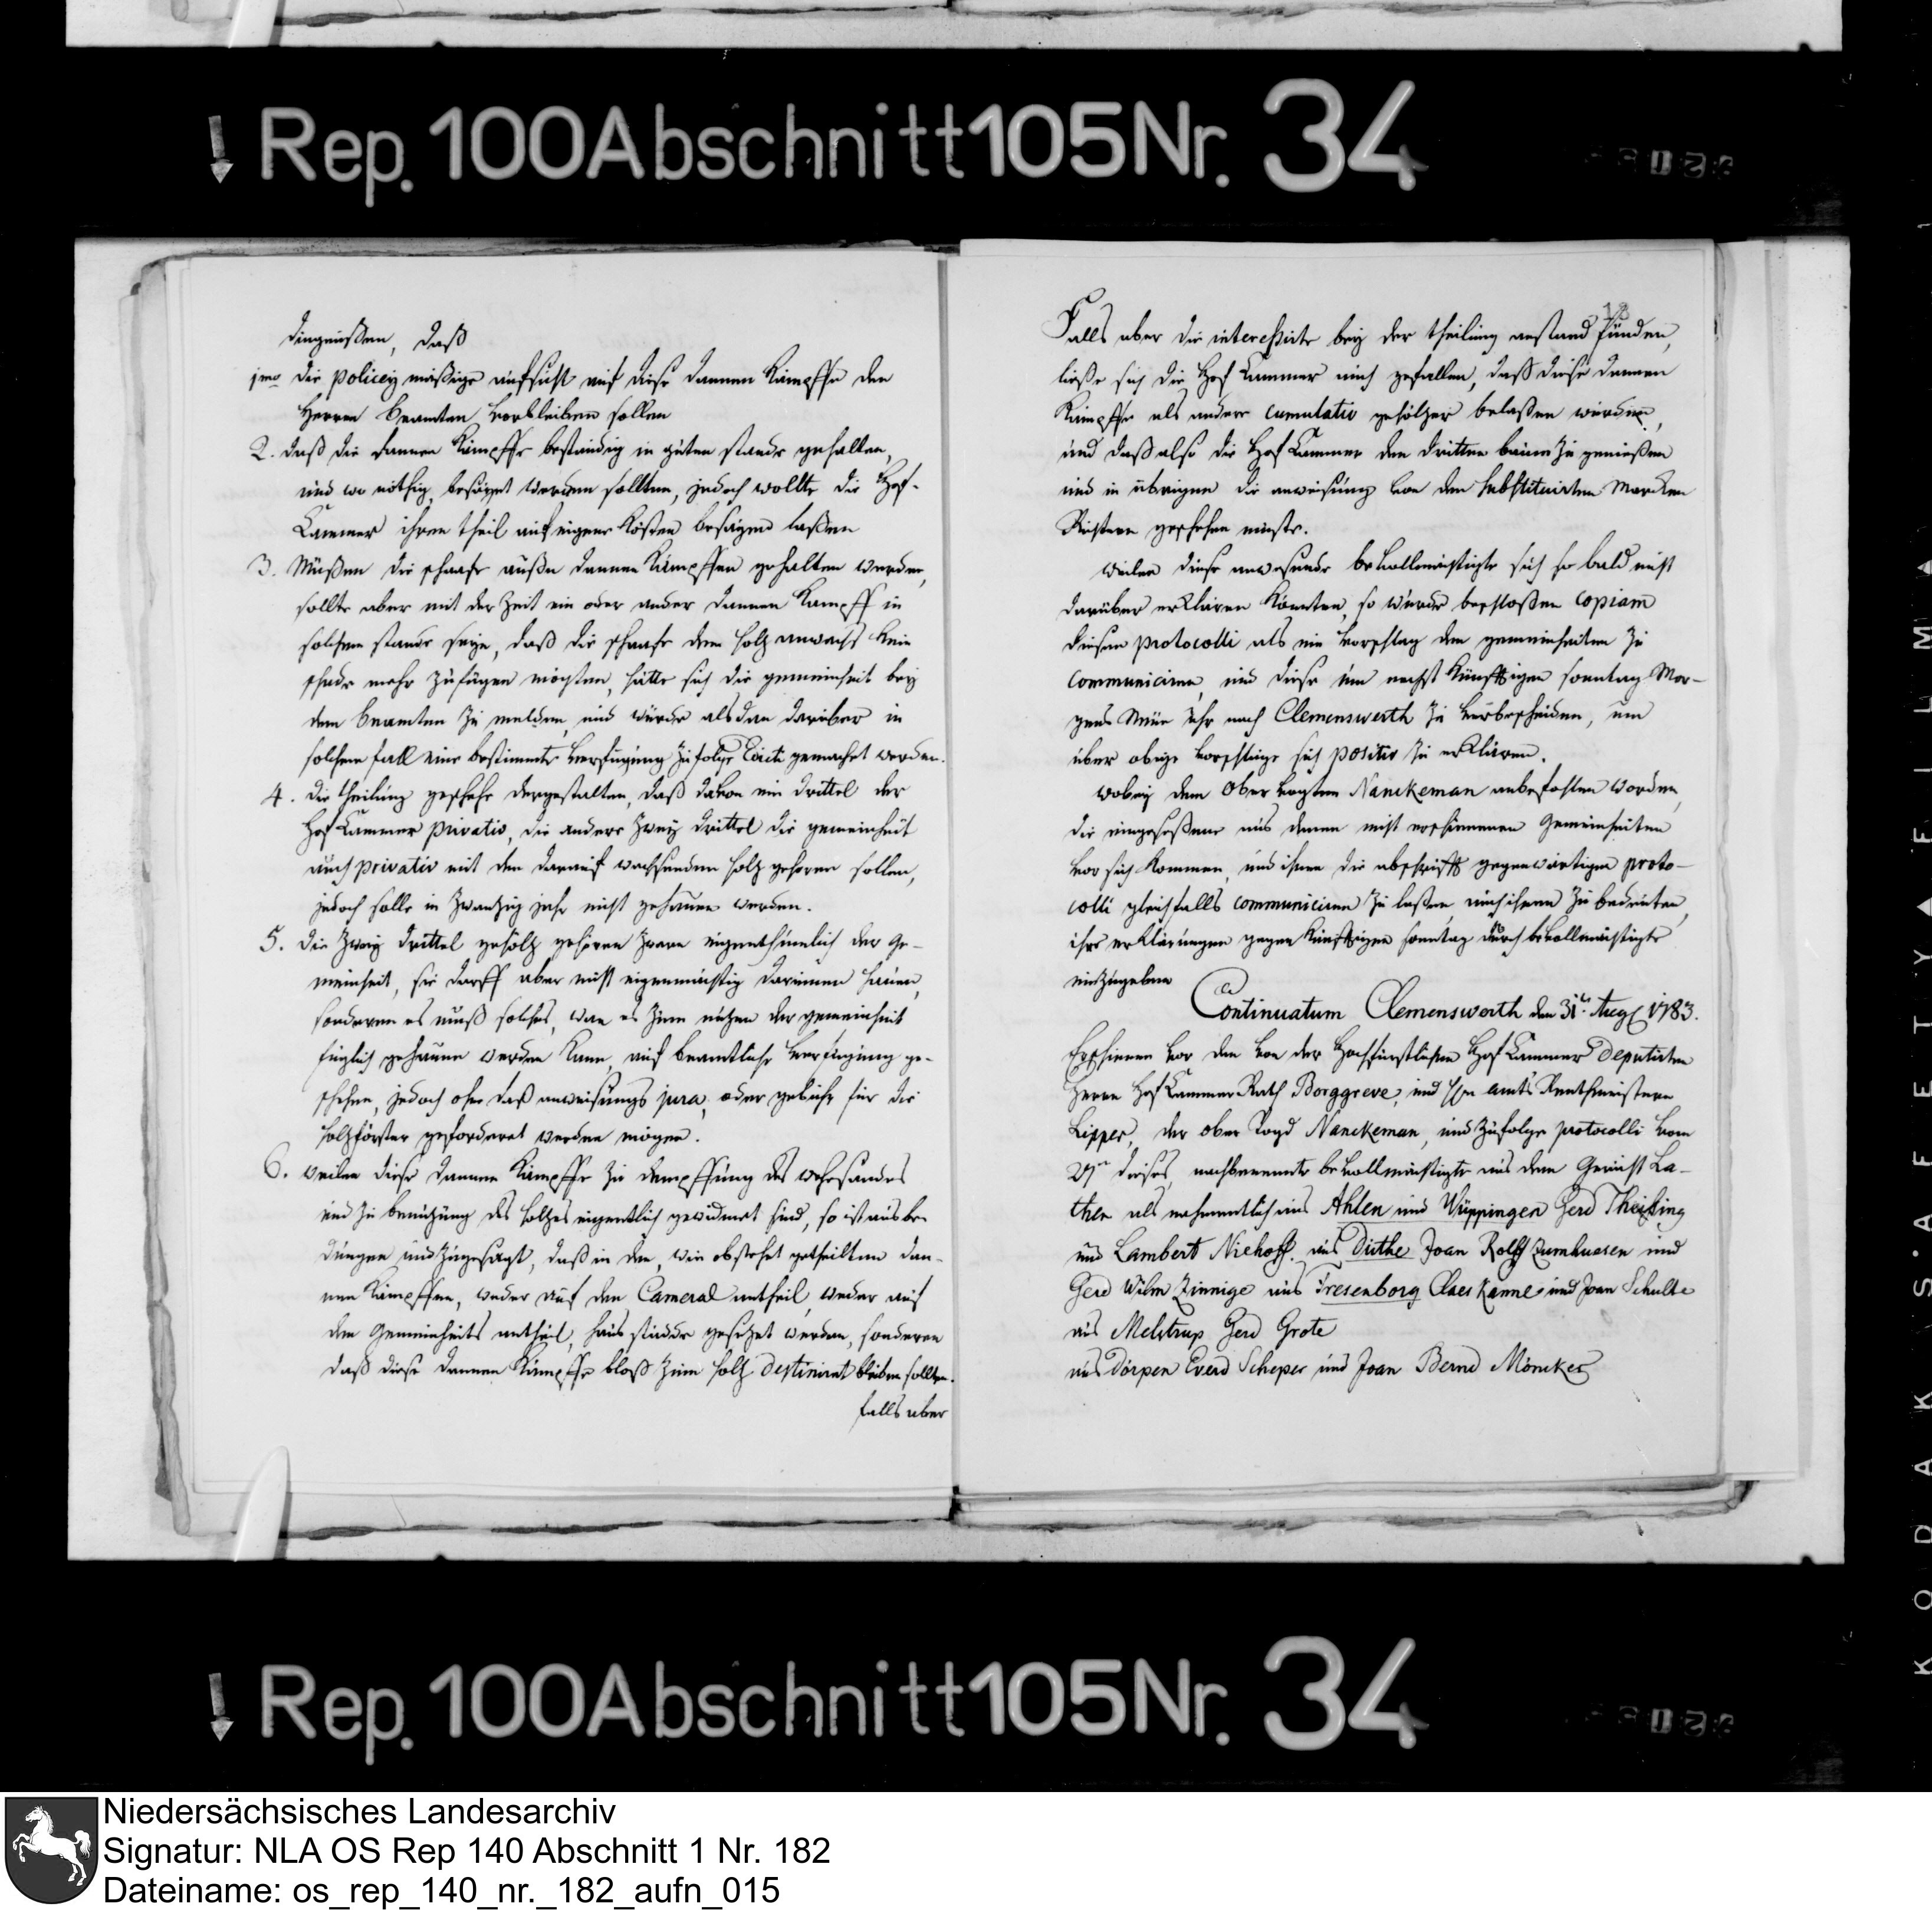 Rep. 100 Abschnitt 105 Nr. 34
dingnußen, daß
1mo die policey mäßige aufsicht auf diese dannen Kämpffe den
Herren Beamten verbleiben sollen
2. daß die dannen Kämpffe beständig in guten stande gehalten,
und wo nöthig, besaamet werden sollten, jedoch wollte die Hof-
Cammer ihren theil auf eigene Kosten besaamen laßen
3. Müßen die schaafe außer dannen Kämpffen gehalten werden,
sollte aber mit der Zeit ein oder ander dannen Kampff in
solchem stande seyn, daß die schaafe dem holz anwachs kein
schade mehr zufügen mögten, hätte sich die gemeinheit bey
dem Beamten zu melden, und würde alsdan darüber in
solchem fall eine bestimmte Verfügung zufolge Edicti gemachet werden.
4. die theilung geschehe dergestalten, daß davon ein drittel der
Hof Cammer privativ, die andere Zwey drittel die gemeinheit
auch privativ mit den darauf wachsenden holz gehören sollen,
jedoch solle in zwanzig jahr nicht gehauen werden.
5. Die Zwey drittel gehölz gehören zwarn eigenthümlich der Ge-
meinheit, sie darff aber nicht eigenmächtig darinnen hauen,
sonderen es muß solches, wan es zum nutzen der gemeinheit
füglich gehauen werden kann, auf beamtliche Verfügung ge-
schehen, jedoch ohne daß anweisungs jura, oder gebühr für die
holzförster geforderet werden mögen.
6. weilen diese dannen Kämpffe zu dempffung des wehesandes
und zu benutzung des holzes eigentlich gewidmet sind, so ist ausbe-
dungen und zugesagt, daß in den, wie obstehet getheilten dan-
nen Kämpffen, weder auf den Cameral antheil, weder auf
den Gemeinheits antheil, haus städde gesetzet werden, sonderen
daß diese dannen Kämpffe bloß zum holz destiniret bleiben sollten.
falls aber
18
Falls aber die interessirte bey der theilung anstand fünden,
ließe sich die Hof Cammer auch gefallen, daß diese dannen
Kämpffe als andere cumulativ gehölzer belaßen würden,
und daß also die Hof Cammer den dritten baum zu genießen
und in übrigen die anweisung von den substituirten Marcken
Richtern geschehen müste.
Weilen diese anwesende bevollmächtigte sich so bald nicht
darüber erklären könnten, so wurde beschloßen copiam
diesen protocolli als ein Vorschlag den gemeinheiten zu
communiciren, und diese um nechst künfftigen sonntag Mor-
gens Neun Uhr nach Clemenswerth zu verbescheiden, um
über obige Vorschläge sich positiv zu erklären.
wobey dem Ober Vogten Nanckeman anbefohlen worden,
die eingeseßene aus denen nicht erschienenen Gemeinheiten
vor sich kommen, und ihnen die abschrifft gegenwärtigen proto-
colli gleichfalls communiciren zu laßen, auch ihnen zu bedeuten,
ihre erklärungen gegen künfftigen sonntag durch bevollmächtigte
einzugeben
Continuatum Clemenswerth den 31t Aug 1783.
Erschienen vor den von der Hochfürstlichen Hof Cammer deputirten
Herrn Hof Cammer Rath Borggreve, und Hn Amts Rentmeistern
Lipper, der ober Vogd Nanckeman, und zufolge protocolli vom
29n dieses, nachbenennte bevollmächtigte aus dem Gericht La-
then als nahmentlich aus Ahlen und Wippingen Gerd Theißing
und Lambert Niehoff. aus Düthe Joan Rolff Zumhuesen und
Gerd Wilm Zinnige aus Fresenborg Claes Kanne und Joan Schulte
aus Melstrup Gerd Grote
aus Dörpen Everd Scheper und Joan Bernd Möncker
KODAK SAFETY FILM
Rep. 100 Abschnitt 105 Nr. 34
Niedersächsisches Landesarchiv
Signatur: NLA OS Rep 140 Abschnitt 1 Nr. 182
Dateiname: os_rep_140_nr._182_aufn_015